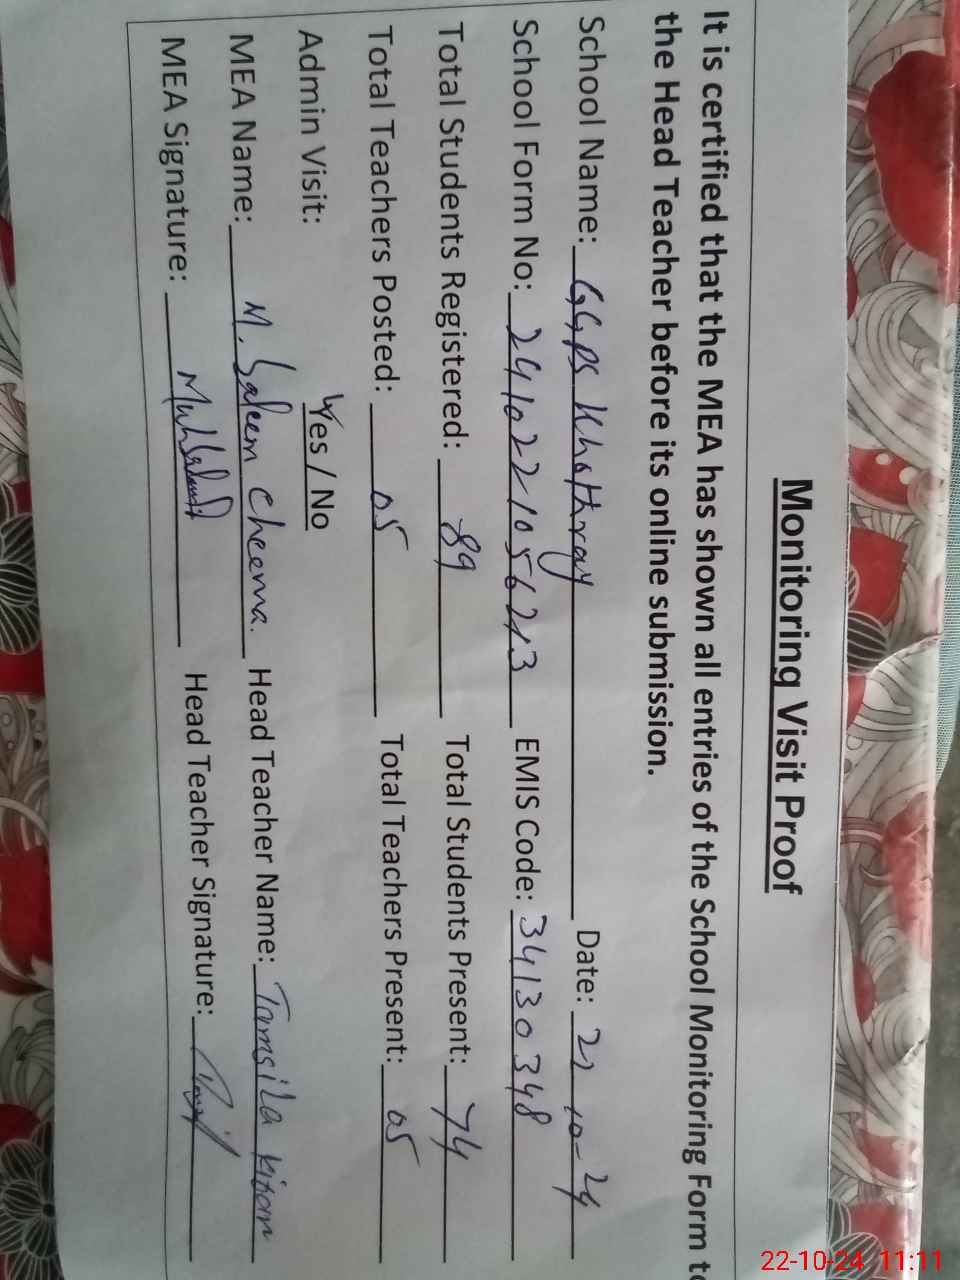 Monitoring Visit Proof
It is certified that the MEA has shown all entries of the School Monitoring Form to
the Head Teacher before its online submission.
School Name: GGPS Khothray Date: 22-10-24
School Form No: 241022105623 EMIS Code: 34130348
Total Students Registered: 89 Total Students Present: 74
Total Teachers Posted: 05 Total Teachers Present: 05
Admin Visit: Yes / No
MEA Name: M. Saleem Cheema. Head Teacher Name: Tamsila
MEA Signature: Head Teacher Signature:
22-10-24 11:11